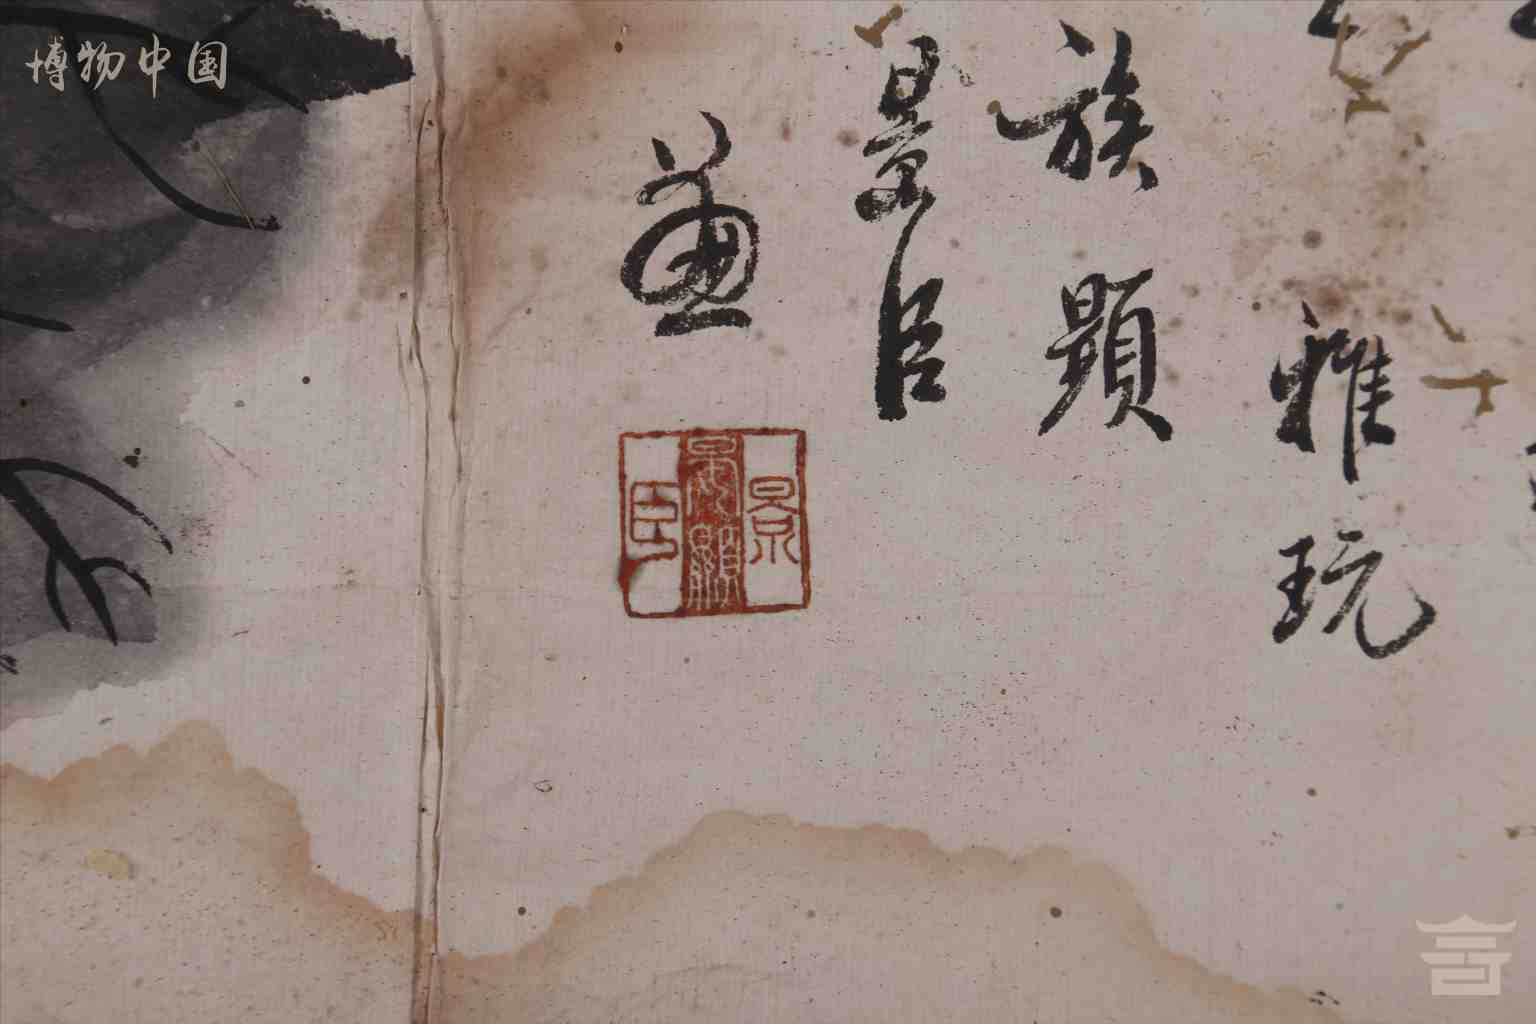 博物中国
雅玩
族顯
景臣
畫
景
吳顯
臣